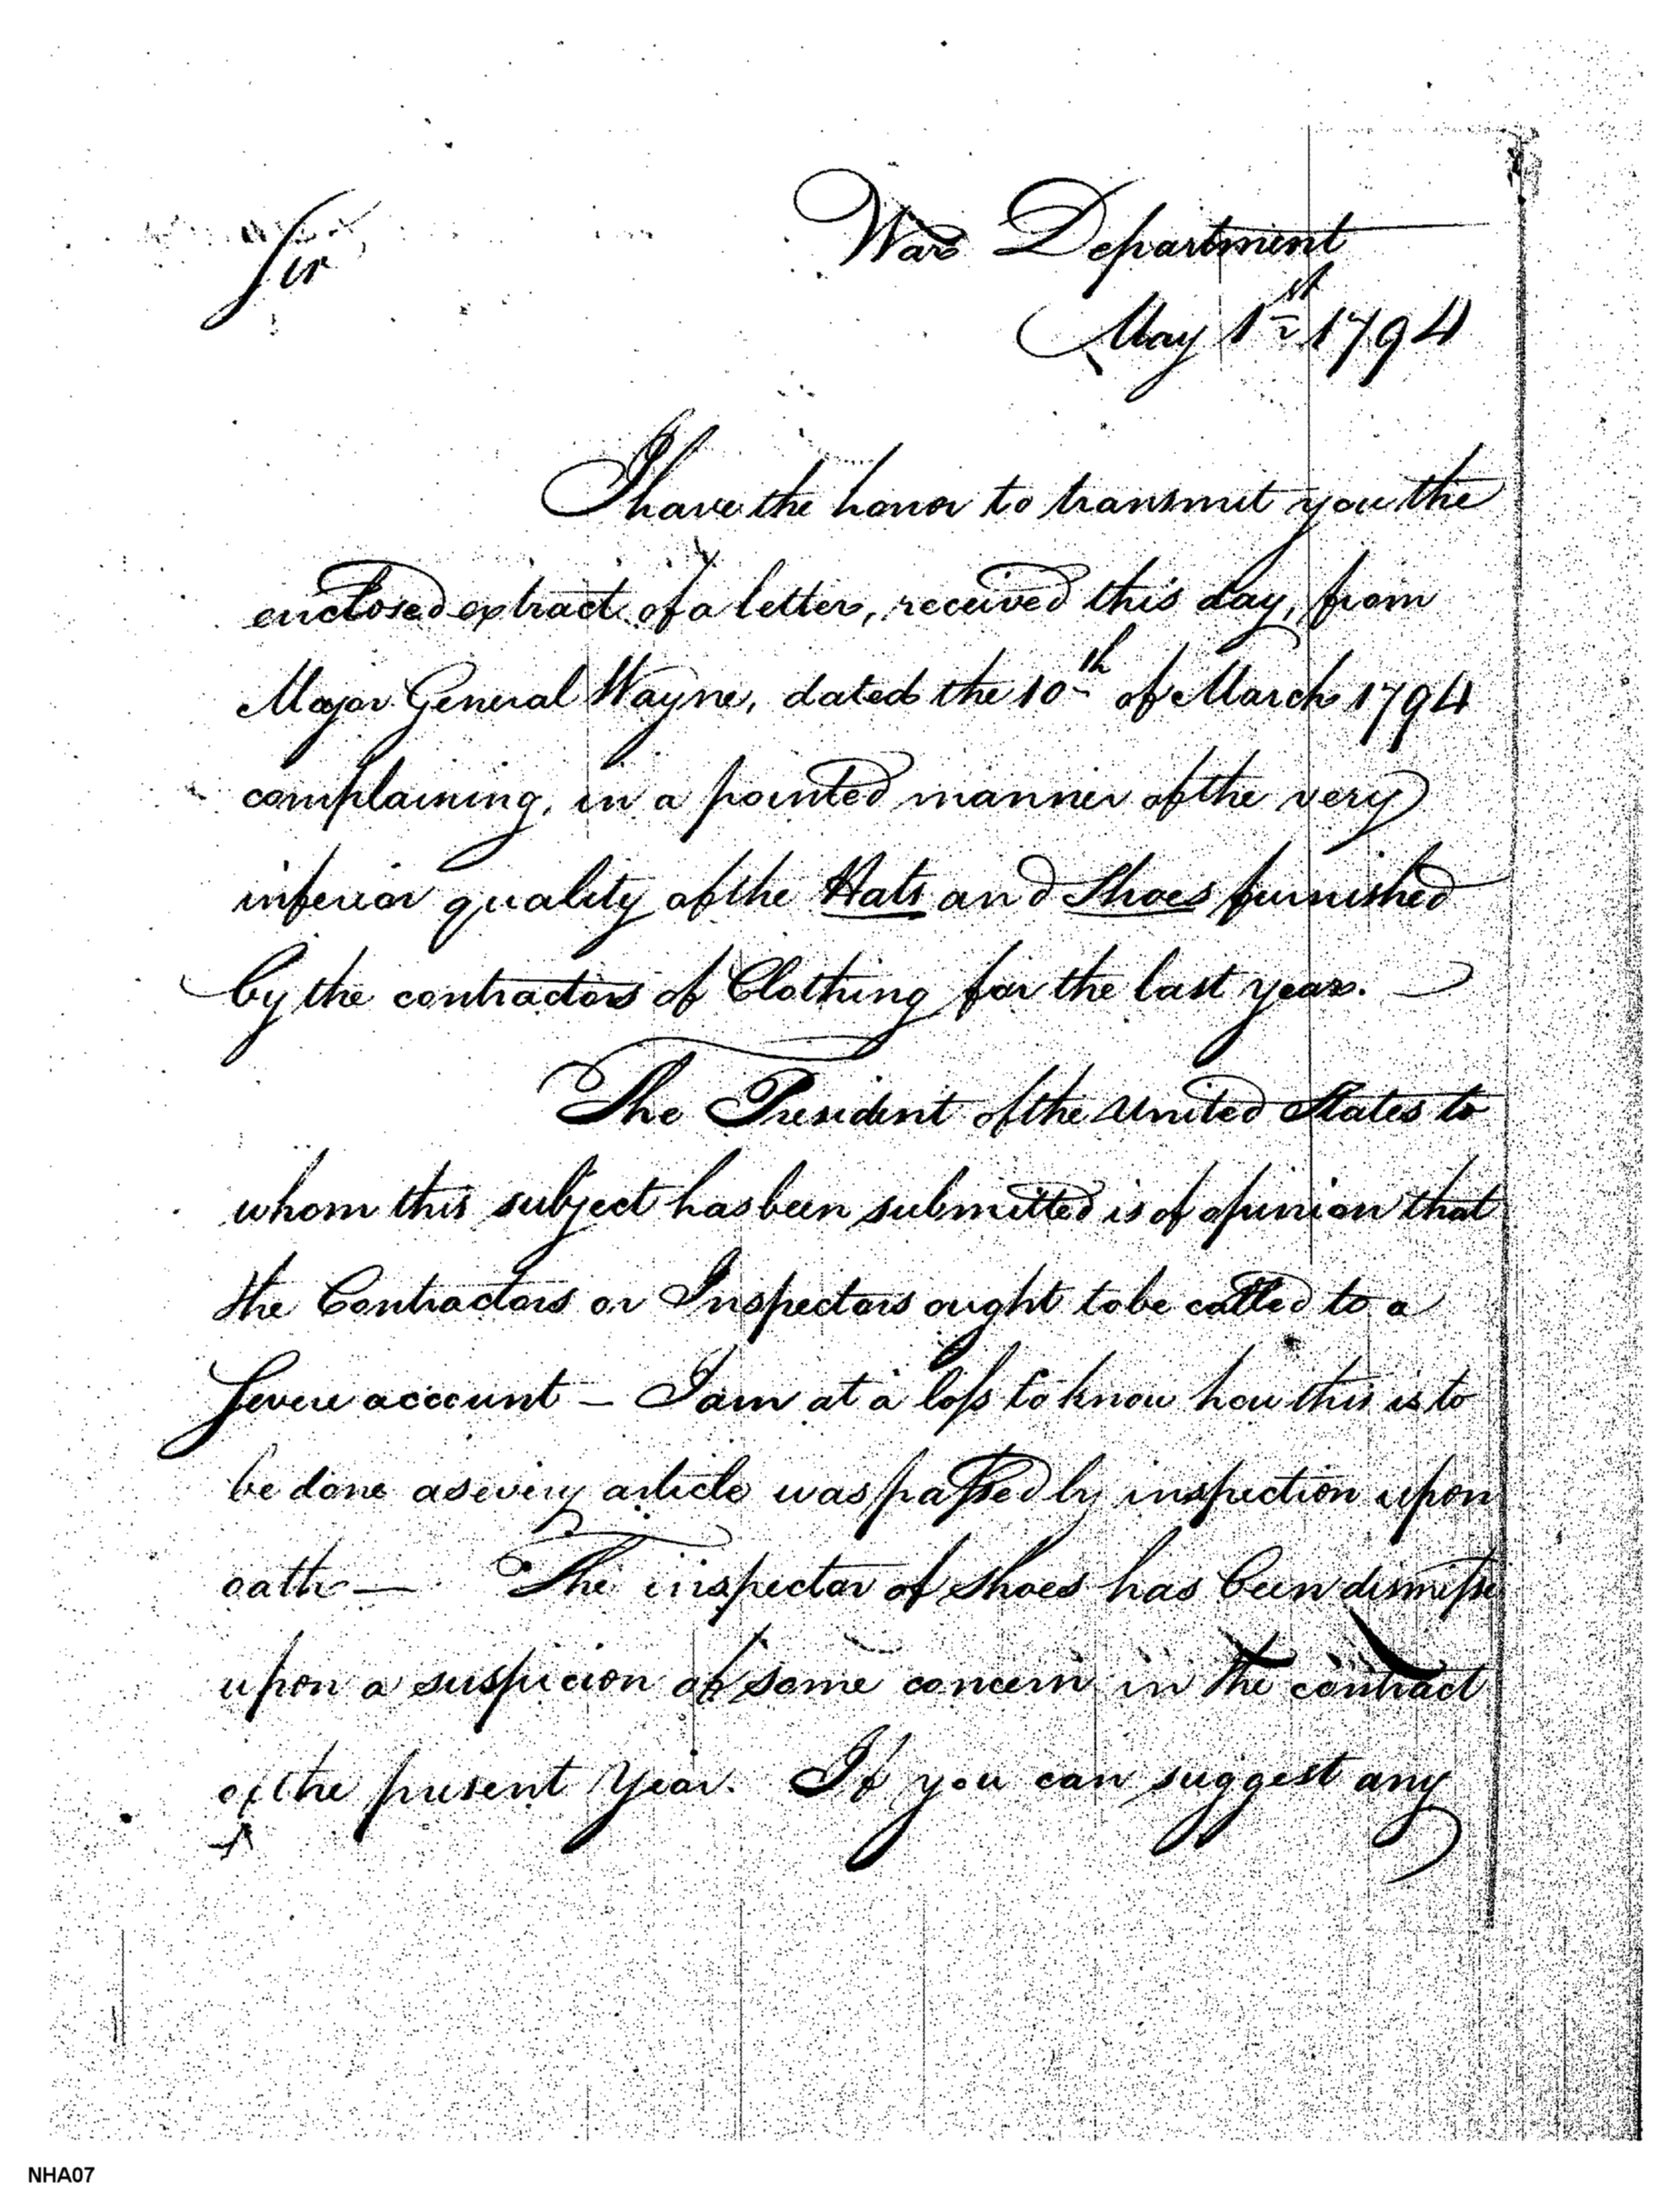 Sir
War Department
May 1st 1794
I have the honor to transmit you the
enclosed extract of a letter, received this day, from
Major General Wayne, dated the 10th of March 1794
complaining, in a pointed manner of the very
inferior quality of the Hats and Shoes furnished
by the contractors of Clothing for the last year.
The President of the United States to
whom this subject has been submitted is of opinion that
the Contractors or Inspectors ought to be called to a
severe account — I am at a loss to know how this is to
be done as every article was passed by inspection upon
oath — The inspector of shoes has been dismisse
upon a suspicion of some concern in the contract
of the present Year. If you can suggest any
NHA07